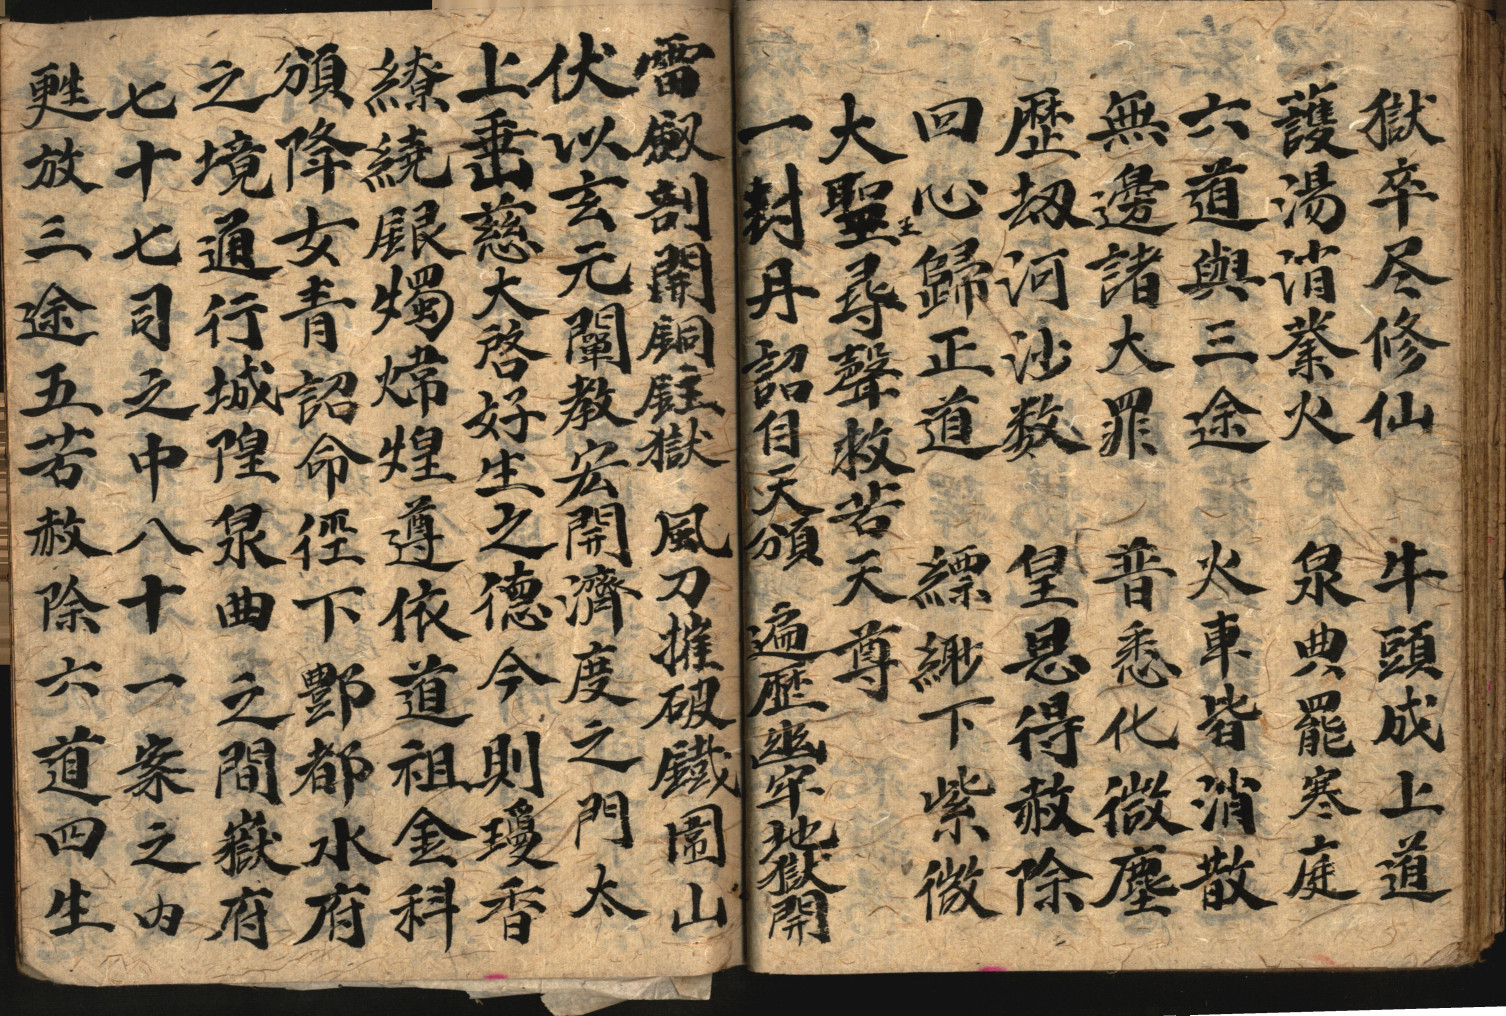 獄卒尽修仙 牛頭成上道
護湯消業火 泉典罷寒庭
六道與三途 火車皆消散
無邊諸大罪 普悉化微塵
歷劫河沙数 皇恩得赦除
回心歸正道 縹緲下紫微
大聖主尋聲救苦天尊
一封丹詔自天頒 遍歷幽牢地獄開
雷劔剖開銅柱獄 風刀摧破鐵圍山
伏以玄元闡教宏開濟度之門太
上垂慈大啓好生之德今則瓊香
繚繞銀燭煒煌遵依道祖金科
頒降女青詔命徑下酆都水府
之境通行城隍泉曲之間嶽府
七十七司之中八十一案之内
甦放三途五苦赦除六道四生